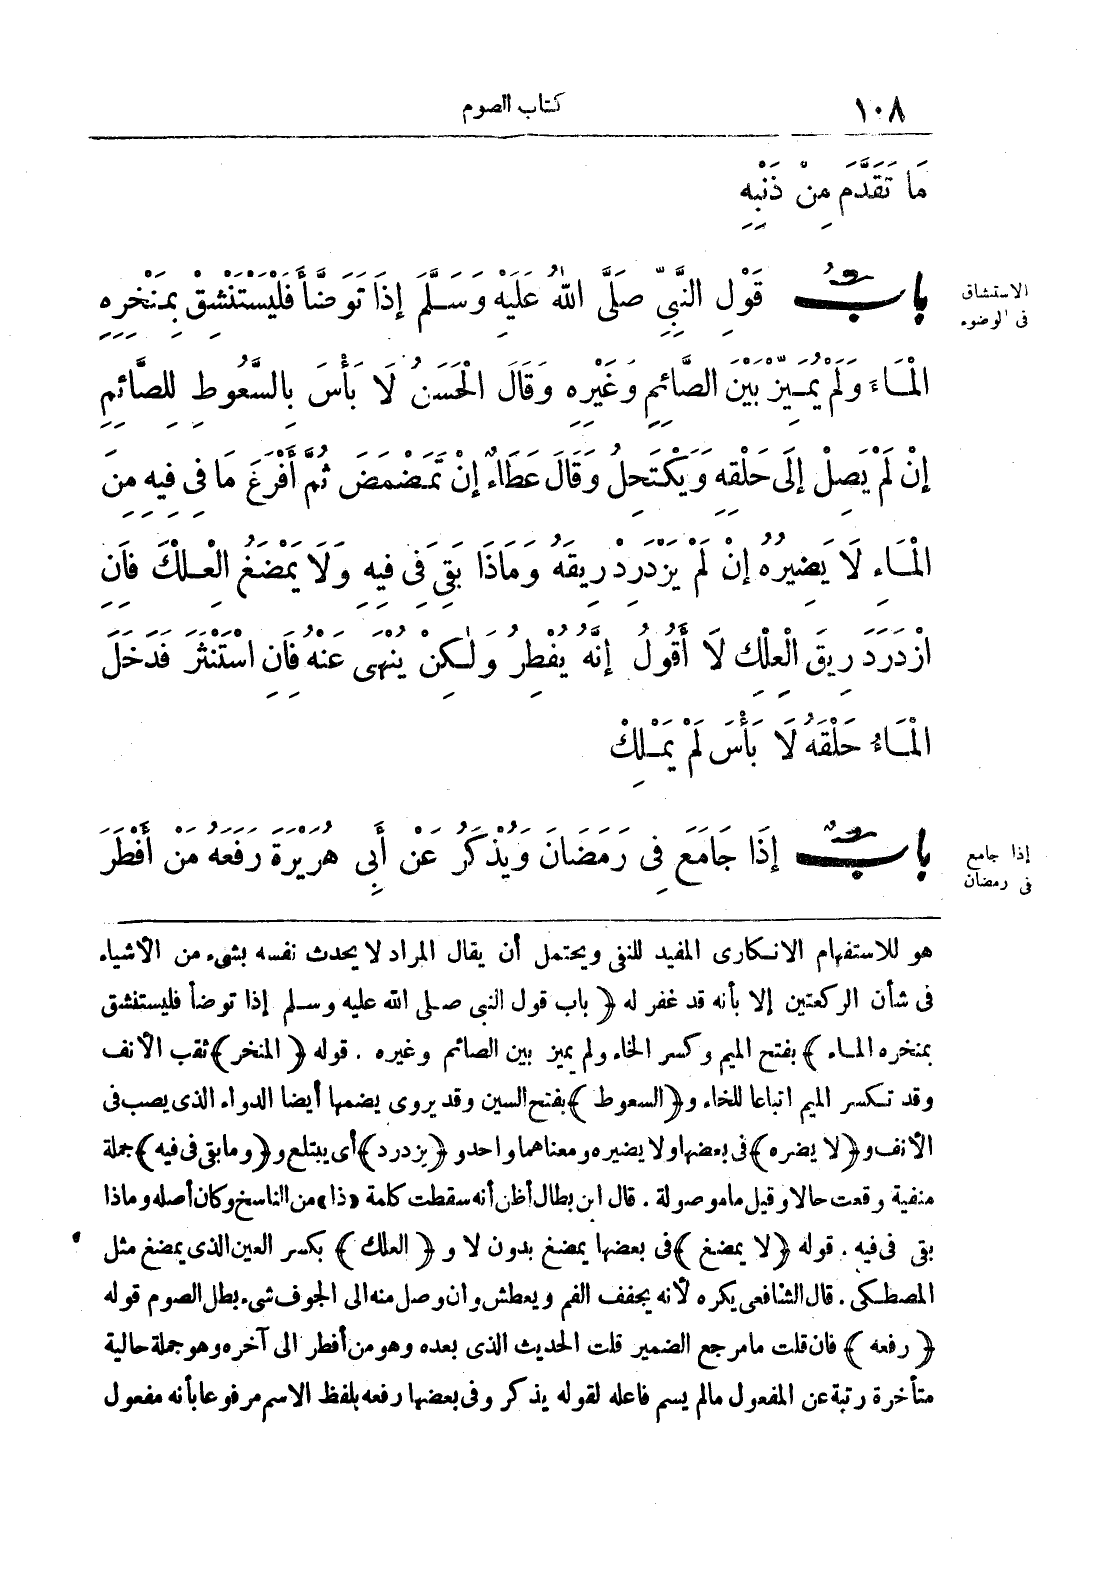 ١٠٨
كتاب الصوم
مَا تَقَدَّمَ مِنْ ذَنْبِهِ
الاستنشاق
فى الوضوء
بَابُ قَوْلِ النَّبِيِّ صَلَّى اللهُ عَلَيْهِ وَسَلَّمَ إِذَا تَوَضَّأَ فَلْيَسْتَنْشِقْ بِمَنْخِرِهِ
الْمَاءَ وَلَمْ يُمَيِّزْ بَيْنَ الصَّائِمِ وَغَيْرِهِ وَقَالَ الْحَسَنُ لَا بَأْسَ بِالسَّعُوطِ لِلصَّائِمِ
إِنْ لَمْ يَصِلْ إِلَى حَلْقِهِ وَيَكْتَحِلُ وَقَالَ عَطَاءٌ إِنْ تَمَضْمَضَ ثُمَّ أَفْرَغَ مَا فِى فِيهِ مِنَ
الْمَاءِ لَا يَضِيرُهُ إِنْ لَمْ يَزْدَرِدْ رِيقَهُ وَمَاذَا بَقِىَ فِى فِيهِ وَلَا يَمْضَغُ الْعِلْكَ فَإِنِ
ازْدَرَدَ رِيقَ الْعِلْكِ لَا أَقُولُ إِنَّهُ يُفْطِرُ وَلَكِنْ يُنْهَى عَنْهُ فَإِنِ اسْتَنْثَرَ فَدَخَلَ
الْمَاءُ حَلْقَهُ لَا بَأْسَ لَمْ يَمْلِكْ
إذا جامع
فى رمضان
بَابٌ إِذَا جَامَعَ فِى رَمَضَانَ وَيُذْكَرُ عَنْ أَبِى هُرَيْرَةَ رَفَعَهُ مَنْ أَفْطَرَ
هو للاستفهام الانكارى المفيد للنفى ويحتمل أن يقال المراد لا يحدث نفسه بشىء من الأشياء
فى شأن الركعتين إلا بأنه قد غفر له ﴿ باب قول النبى صلى الله عليه وسلم إذا توضأ فليستنشق
بمنخره الماء ﴾ بفتح الميم وكسر الخاء ولم يميز بين الصائم وغيره . قوله ﴿ المنخر ﴾ ثقب الأنف
وقد تكسر الميم اتباعا للخاء و﴿ السعوط ﴾ بفتح السين وقد يروى بضمها أيضا الدواء الذى يصب فى
الأنف و﴿ لا يضره ﴾ فى بعضها ولا يضيره ومعناهما واحد و ﴿ يزدرد ﴾ أى يبتلع و﴿ وما بقى فى فيه ﴾ جملة
منفية وقعت حالا وقيل ما موصولة . قال ابن بطال أظن أنه سقطت كلمة «ذا» من الناسخ وكان أصله وماذا
بقى فى فيه . قوله ﴿ لا يمضغ ﴾ فى بعضها يمضغ بدون لا و ﴿ العلك ﴾ بكسر العين الذى يمضغ مثل
المصطكى . قال الشافعى يكره لأنه يجفف الفم ويعطش وان وصل منه الى الجوف شىء بطل الصوم قوله
﴿ رفعه ﴾ فان قلت ما مرجع الضمير قلت الحديث الذى بعده وهو من أفطر الى آخره وهو جملة حالية
متأخرة رتبة عن المفعول مالم يسم فاعله لقوله يذكر وفى بعضها رفعه بلفظ الاسم مرفوعا بأنه مفعول